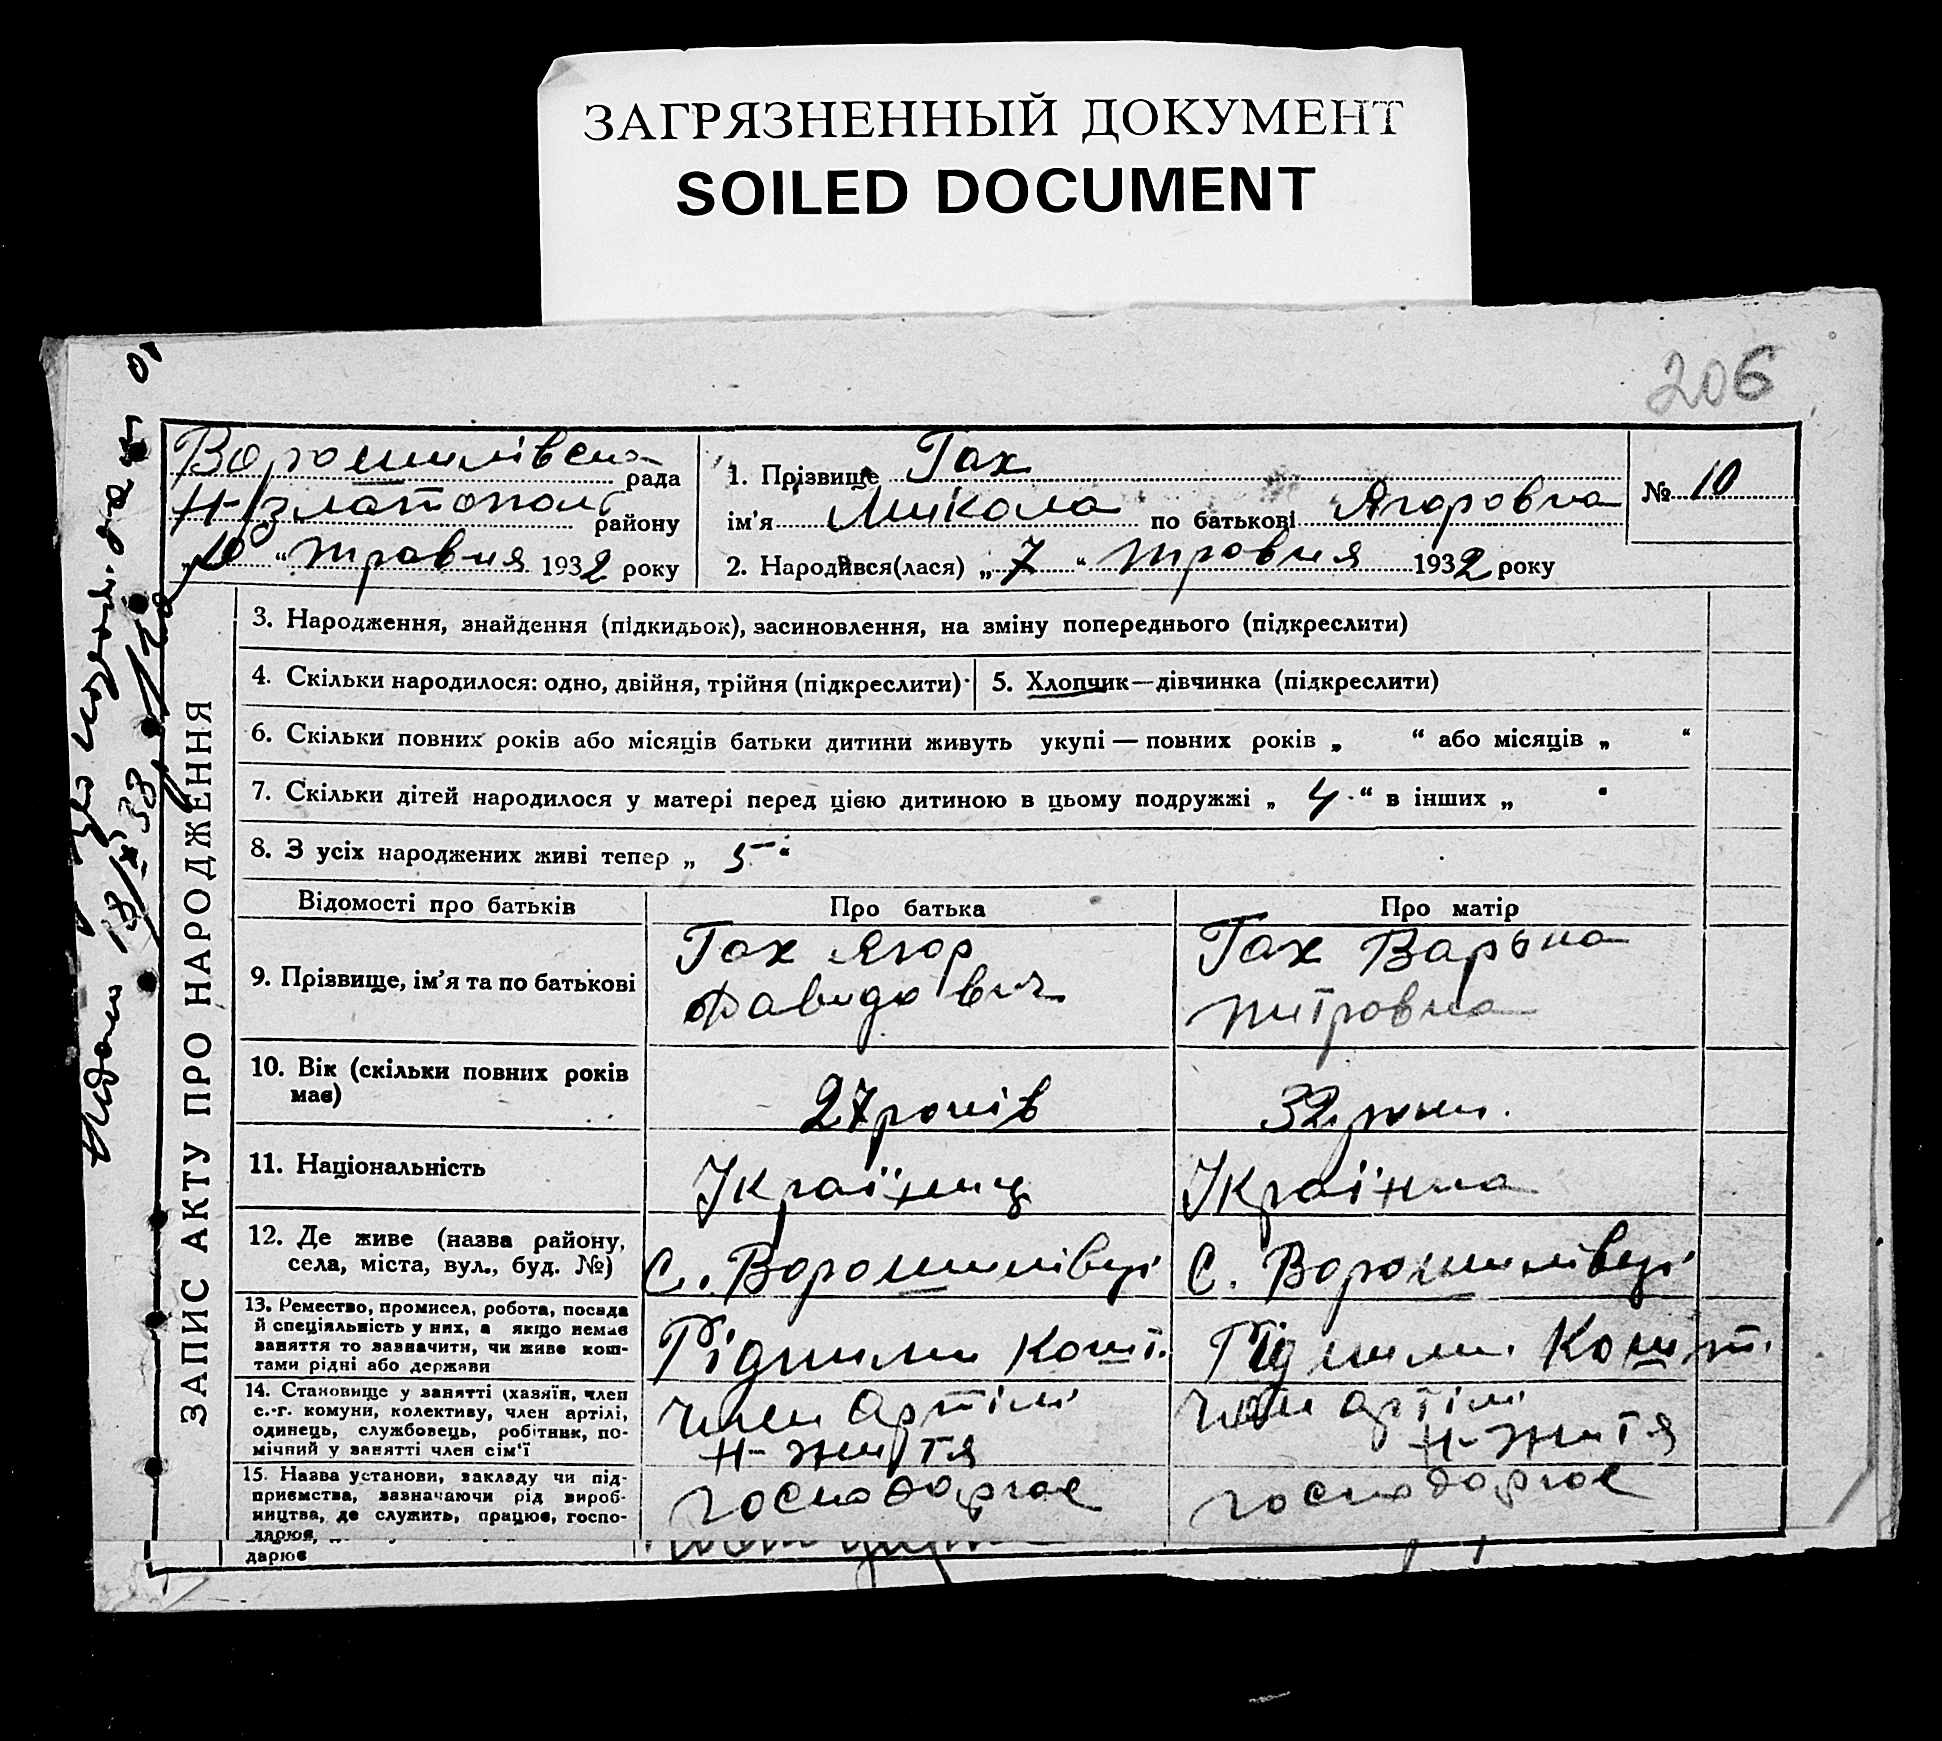 ЗАГРЯЗНЕННЫЙ ДОКУМЕНТ
SOILED DOCUMENT
206
Ворошилівська рада
Н-златополь району
„10“ травня 1932 року
1. Прізвище Гах
ім'я Микола по батькові Ягоровна
2. Народився(лася) „7“ травня 1932 року
№ 10
ЗАПИС АКТУ ПРО НАРОДЖЕННЯ
3. Народження, знайдення (підкидьок), засиновлення, на зміну попереднього (підкреслити)
4. Скільки народилося: одно, двійня, трійня (підкреслити)
5. Хлопчик—дівчинка (підкреслити)
6. Скільки повних років або місяців батьки дитини живуть укупі — повних років „ “ або місяців „ “
7. Скільки дітей народилося у матері перед цією дитиною в цьому подружжі „ 4 “ в інших „ “
8. З усіх народжених живі тепер „ 5 “
Відомості про батьків
Про батька
Про матір
9. Прізвище, ім'я та по батькові
Гах Ягор
Давидович
Гах Варьна
питровна
10. Вік (скільки повних років
має)
27 років
32 роки.
11. Національність
Україниц
Українка
12. Де живе (назва району,
села, міста, вул., буд. №)
с. Ворошилівці
с. Ворошилівці
13. Ремество, промисел, робота, посада
й спеціяльність у них, а якщо немає
заняття то зазначити, чи живе кош-
тами рідні або держави
Рідними кошт.
Рідними. Кошт.
14. Становище у занятті (хазяїн, член
с.-г. комуни, колективу, член артілі,
одинець, службовець, робітник, по-
мічний у занятті член сім'ї
член артілі
Н-життя
член артілі
Н-життя
15. Назва установи, закладу чи під-
приємства, зазначаючи рід вироб-
ництва, де служить, працює, госпо-
дарює,
господарює
господарює
дарює